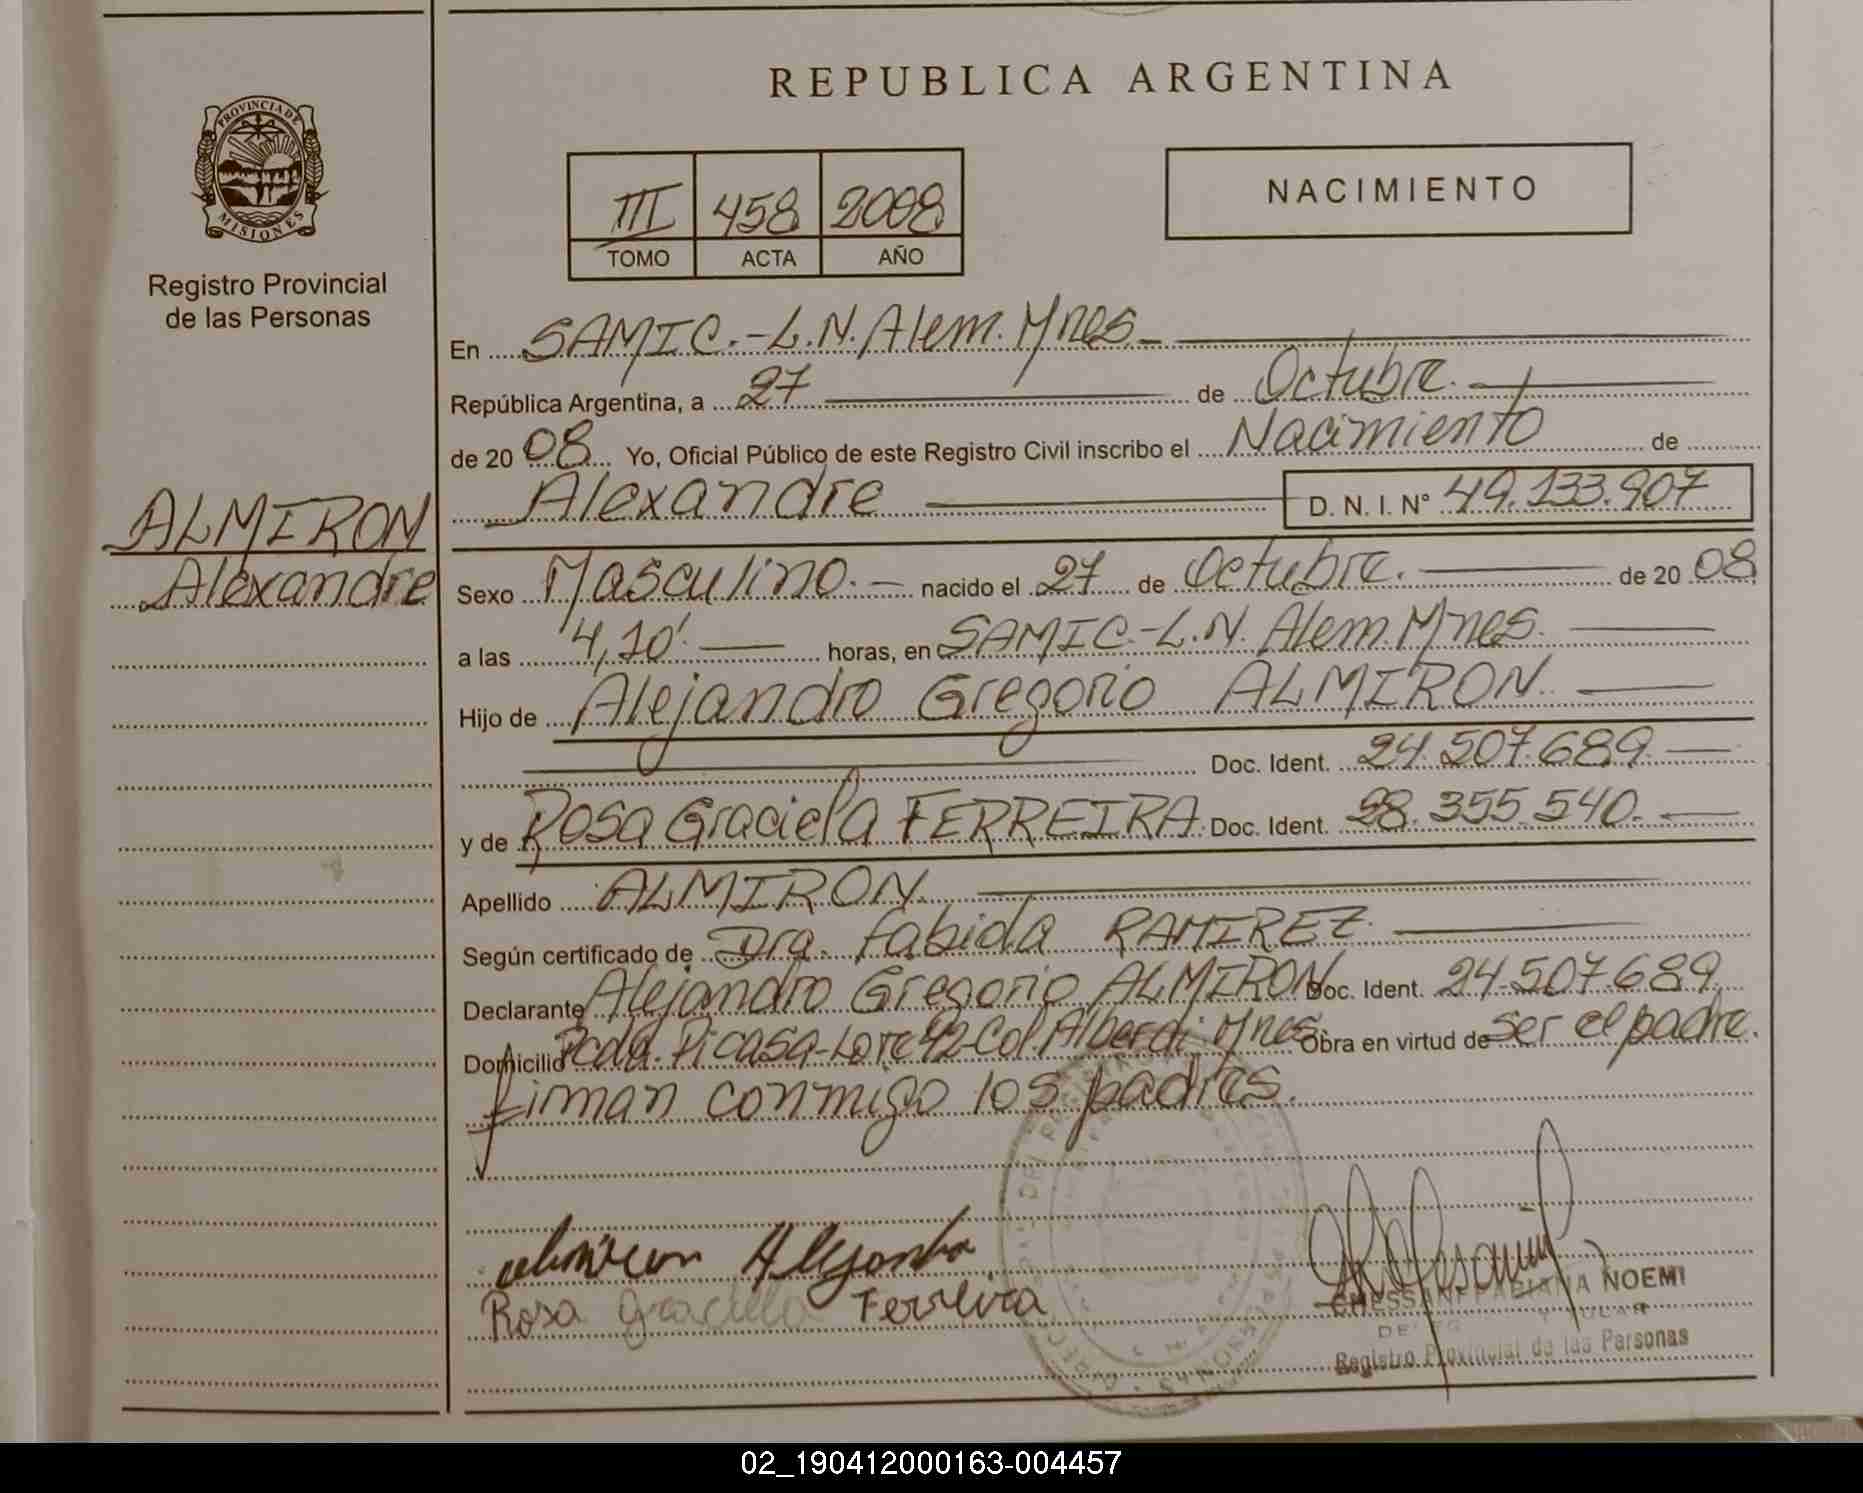 REPUBLICA ARGENTINA
PROVINCIA DE
MISIONES
Registro Provincial
de las Personas
III 458 2008
TOMO ACTA AÑO
NACIMIENTO
En SAMIC.-L.N.Alem.Mnes.
República Argentina, a 27 de Octubre.
de 20 08 Yo, Oficial Público de este Registro Civil inscribo el Nacimiento de
Alexandre D. N. I. Nº 49.133.907
ALMIRON
Alexandre
Sexo Masculino. nacido el 27 de Octubre. de 20 08
a las 4,10'. horas, en SAMIC.-L.N. Alem.Mnes.
Hijo de Alejandro Gregorio ALMIRON.
Doc. Ident. 24.507.689.
y de Rosa Graciela FERREIRA. Doc. Ident. 28.355.540.
Apellido ALMIRON.
Según certificado de Dra. Fabida RAMIREZ.
Declarante Alejandro Gregorio ALMIRON Doc. Ident. 24.507.689.
Domicilio Pcda. Picasa-Lote 42-Col Alberdi Mnes. Obra en virtud de ser el padre.
firman conmigo los padres.
Almiron
Rosa Graciela Ferreira
NOEMI
Registro Provincial de las Personas
02_190412000163-004457